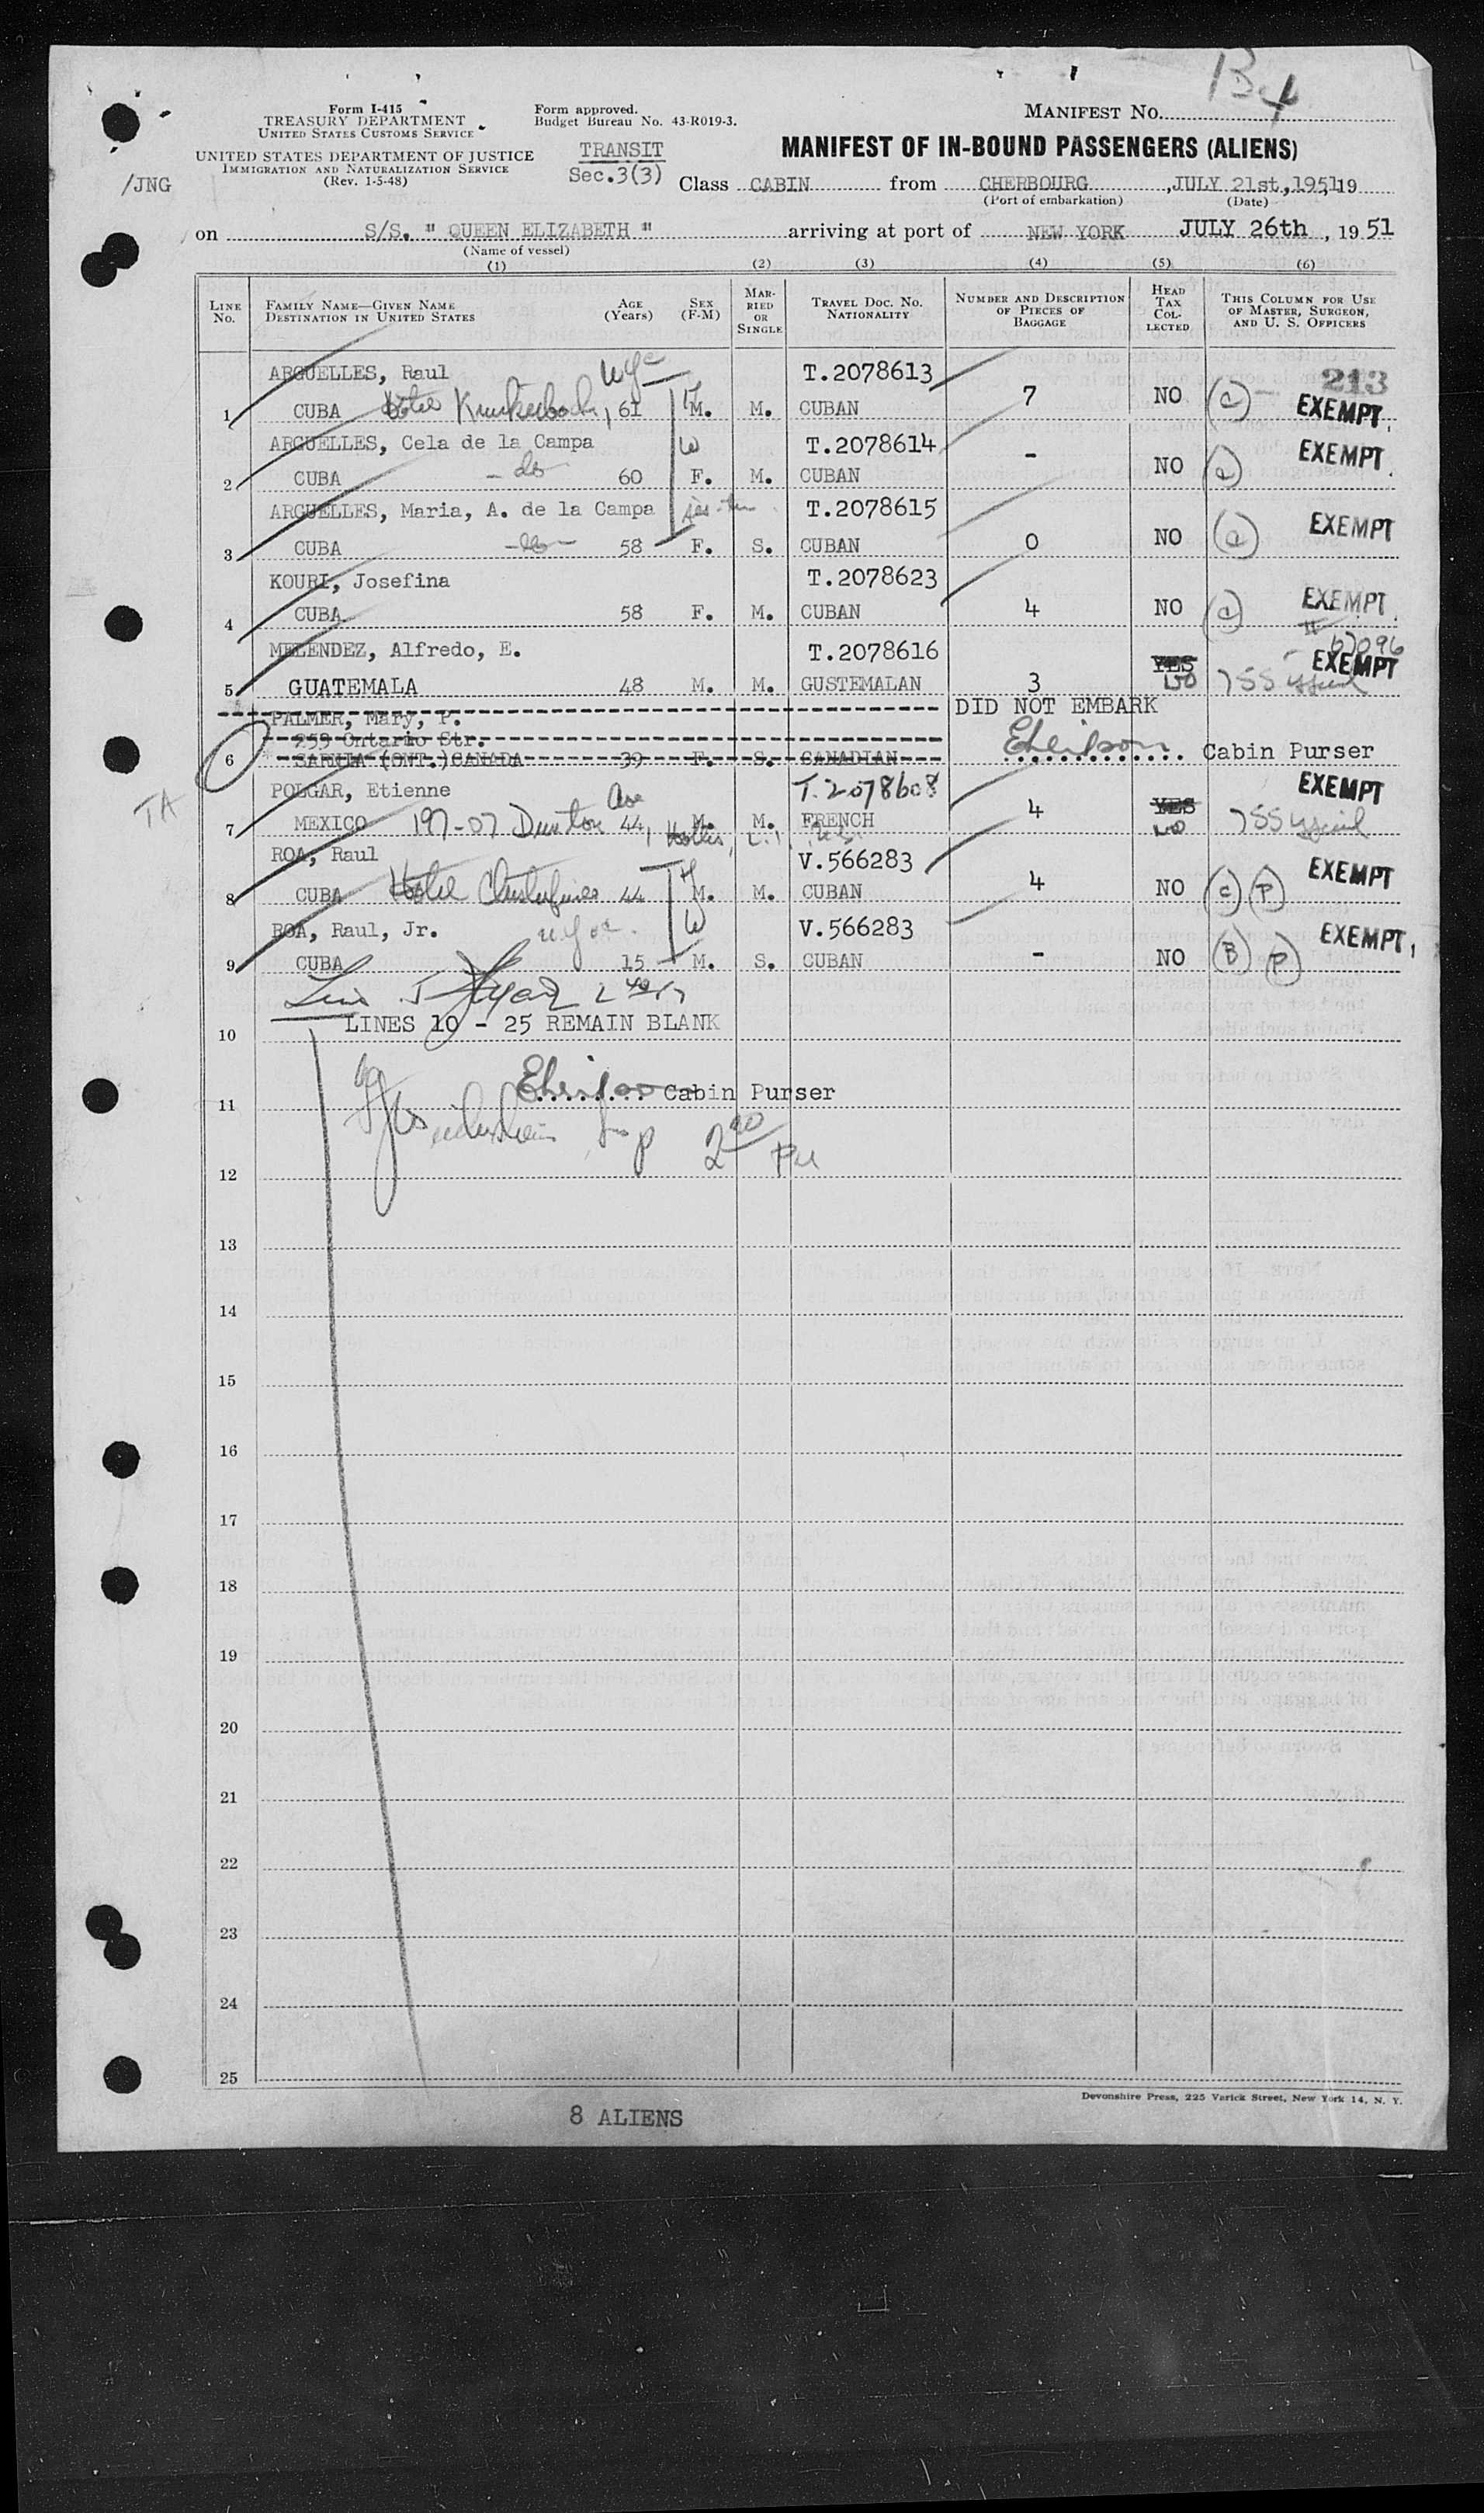 B4
Form I-415
TREASURY DEPARTMENT
UNITED STATES CUSTOMS SERVICE
Form approved.
Budget Bureau No. 43-R019-3.
MANIFEST No.
UNITED STATES DEPARTMENT OF JUSTICE
IMMIGRATION AND NATURALIZATION SERVICE
(Rev. 1-5-48)
TRANSIT
Sec.3(3)
MANIFEST OF IN-BOUND PASSENGERS (ALIENS)
/JNG
Class CABIN from CHERBOURG, JULY 21st, 1951, 19
(Port of embarkation) (Date)
on S/S. " QUEEN ELIZABETH " arriving at port of NEW YORK JULY 26th, 1951
(Name of vessel)
(1) (2) (3) (4) (5) (6)
LINE No. FAMILY NAME—GIVEN NAME DESTINATION IN UNITED STATES AGE (Years) SEX (F-M) MARRIED OR SINGLE TRAVEL DOC. NO. NATIONALITY NUMBER AND DESCRIPTION OF PIECES OF BAGGAGE HEAD TAX COLLECTED THIS COLUMN FOR USE OF MASTER, SURGEON, AND U. S. OFFICERS
ARGUELLES, Raul nyc T.2078613 213
1 CUBA Hotel 61 M. M. CUBAN 7 NO EXEMPT
ARGUELLES, Cela de la Campa W T.2078614
2 CUBA - do 60 F. M. CUBAN - NO EXEMPT
ARGUELLES, Maria, A. de la Campa T.2078615
3 CUBA -do- 58 F. S. CUBAN 0 NO EXEMPT
KOURI, Josefina T.2078623
4 CUBA 58 F. M. CUBAN 4 NO EXEMPT
MELENDEZ, Alfredo, E. T.2078616 YES
5 GUATEMALA 48 M. M. GUSTEMALAN 3 NO EXEMPT
PALMER, Mary, P. DID NOT EMBARK
259 Ontario Str.
6 SARNIA (ONT.) CANADA 39 F. S. CANADIAN Cabin Purser
TA
POLGAR, Etienne Ave T.2078608 EXEMPT
7 MEXICO 197-07 44 M. M. FRENCH 4 YES NO
Hollis, L.I.
ROA, Raul V.566283 EXEMPT
8 CUBA Hotel 44 M. M. CUBAN 4 NO (c) (P)
ROA, Raul, Jr. W V.566283 EXEMPT
9 CUBA 15 M. S. CUBAN - NO (B) (P)
LINES 10 - 25 REMAIN BLANK
10
Cabin Purser
11
12
13
14
15
16
17
18
19
20
21
22
23
24
25
Devonshire Press, 225 Varick Street, New York 14, N. Y.
8 ALIENS